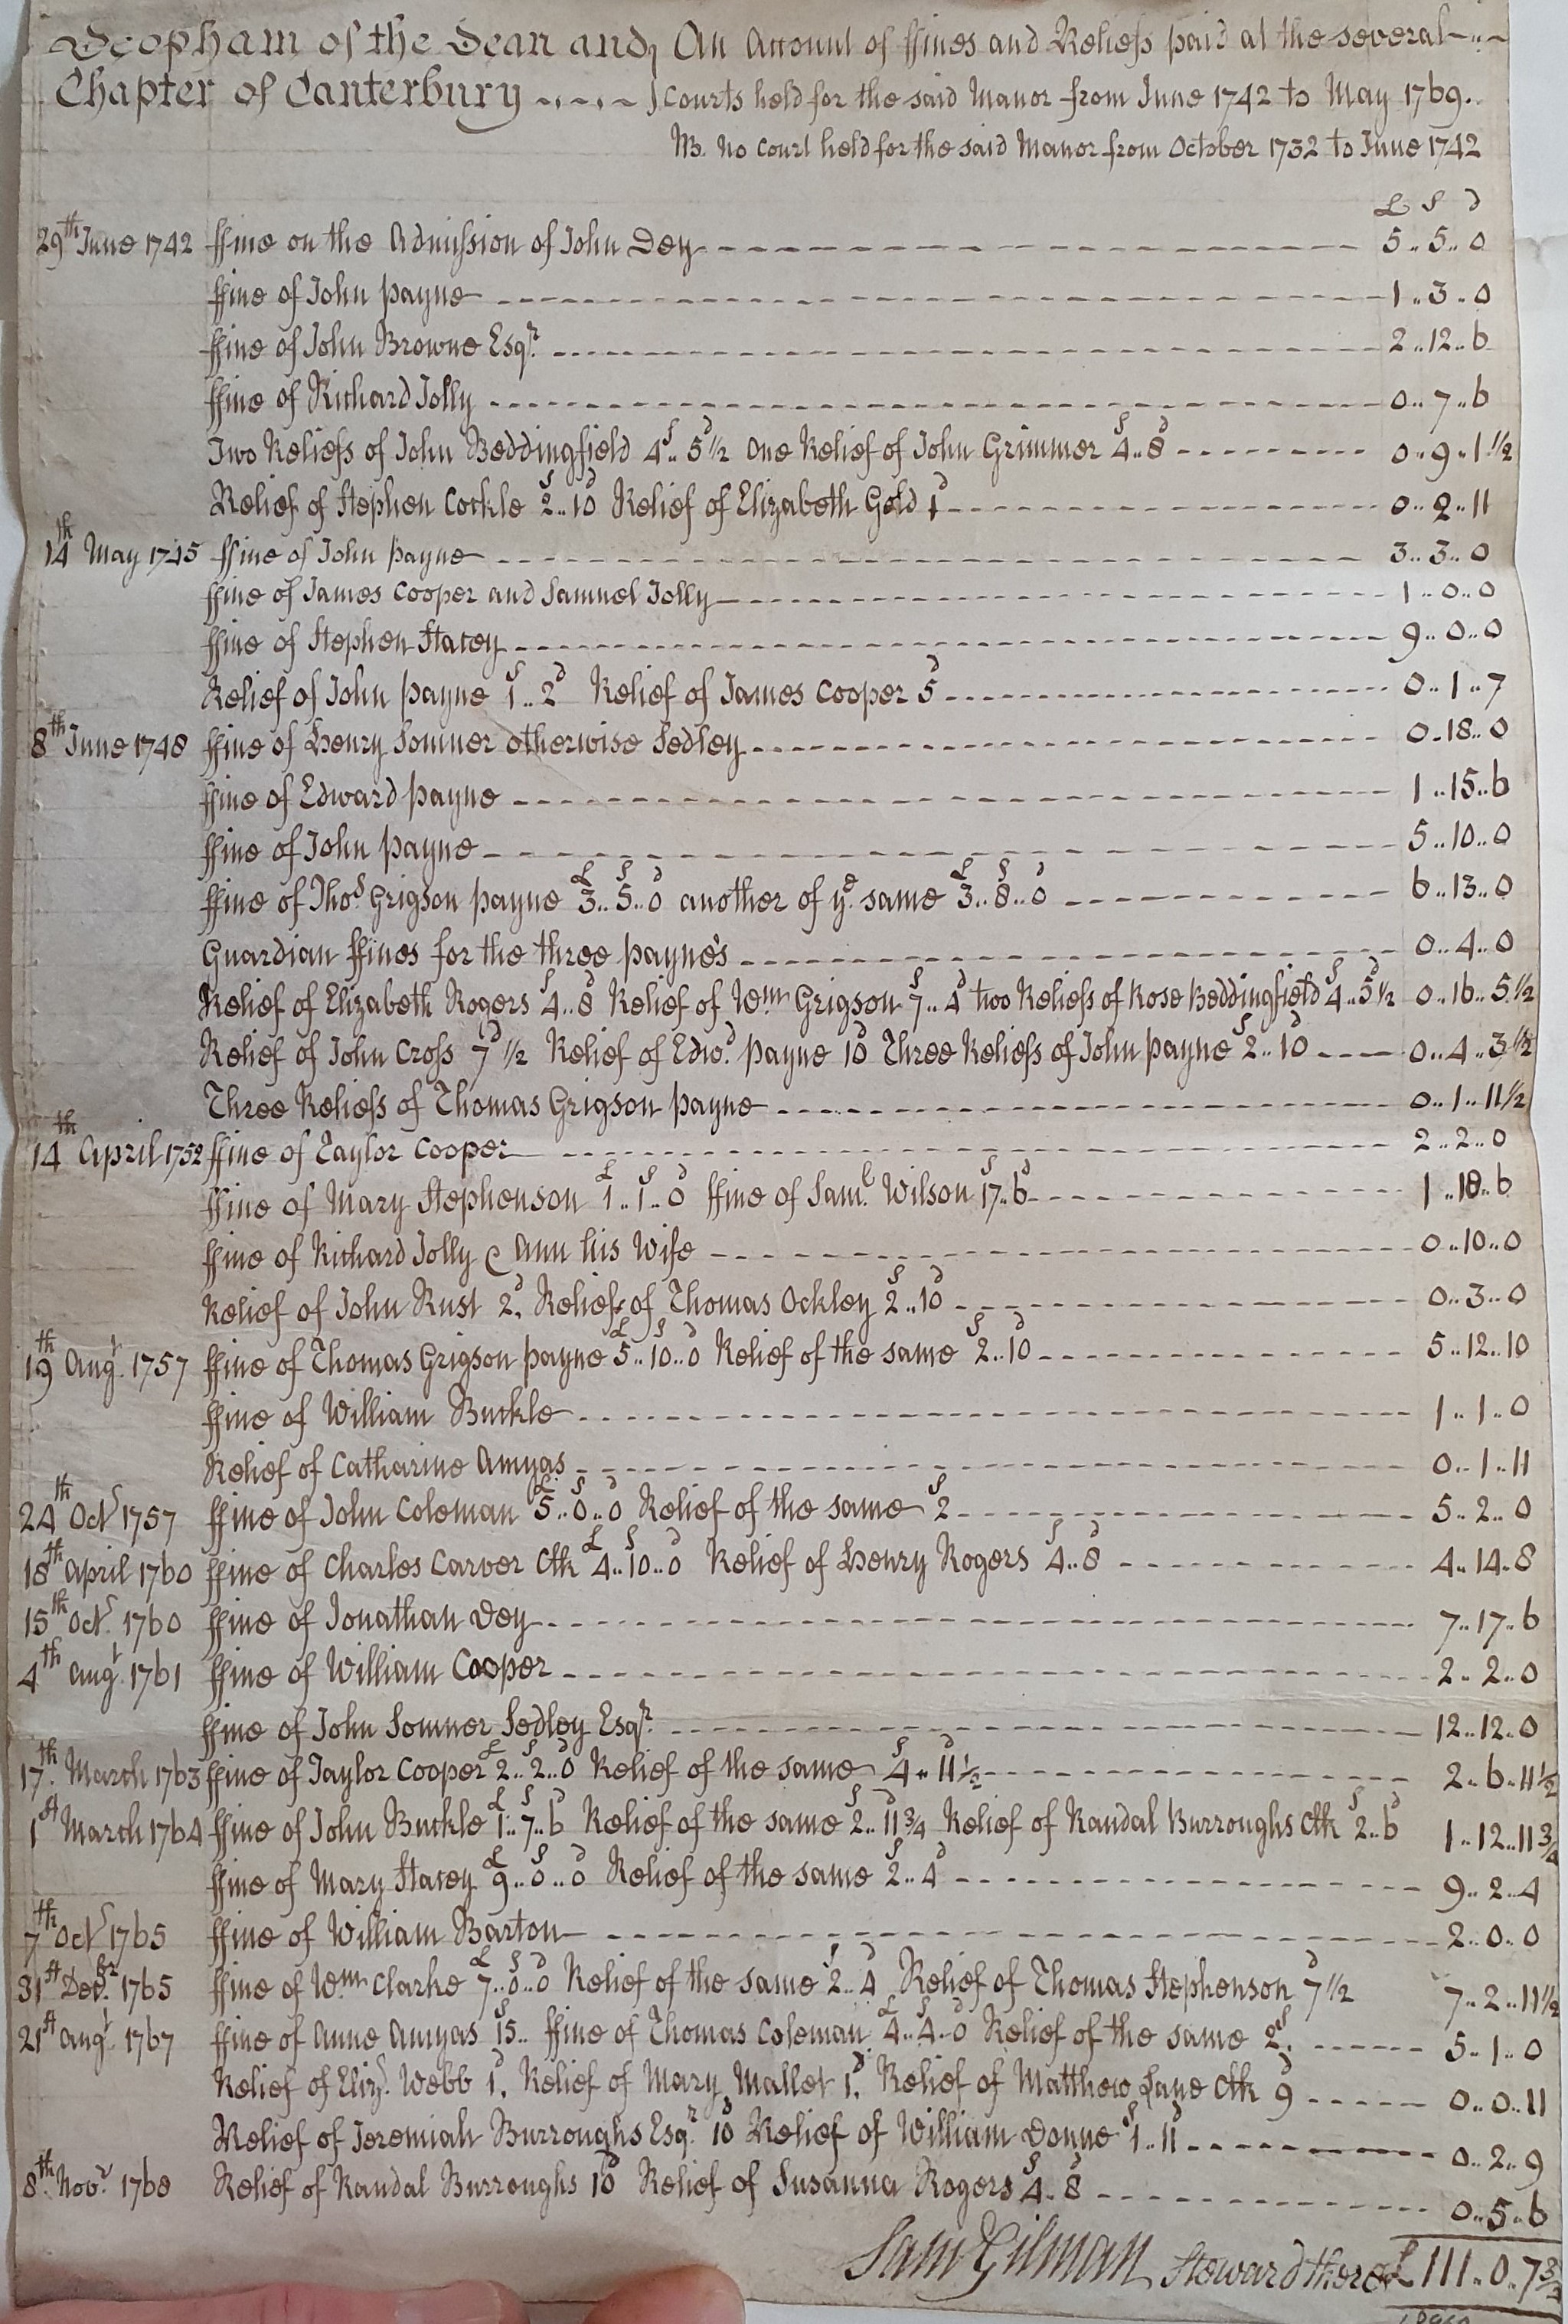 Deopham of the Dean and } An Account of ffines and Reliefs paid at the several
Chapter of Canterbury } Courts held for the said Manor from June 1742 to May 1769.
NB. No Court held for the said Manor from October 1732 to June 1742
£ s d
29th June 1742 ffine on the Admission of John Dey 5.. 5.. 0
ffine of John Payne 1.. 3.. 0
ffine of John Browne Esqr. 2..12..6
ffine of Richard Jolly 0..7..6
Two Reliefs of John Beddingfield 4s.. 5d 1/2 One Relief of John Grimmer 4s..8d 0..9..1 1/2
Relief of Stephen Cockle 2s..10d Relief of Elizabeth Gold 1d 0..2..11
14th May 1745 ffine of John Payne 3..3..0
ffine of James Cooper and Samuel Jolly 1..0..0
ffine of Stephen Stacey 9..0..0
Relief of John Payne 1s..2d Relief of James Cooper 5d 0..1..7
8th June 1748 ffine of Henry Somner otherwise Sedley 0..18..0
ffine of Edward Payne 1..15..6
ffine of John Payne 5..10..0
ffine of Thos. Grigson Payne £3..5s..0d another of ye. same £3..8s..0d 6..13..0
Guardian ffines for the three Payne's 0..4..0
Relief of Elizabeth Rogers 4s..8d Relief of Wm. Grigson 7s..4d two Reliefs of Rose Beddingfield 4s..5d 1/2 0..16..5 1/2
Relief of John Cross 7d 1/2 Relief of Edwd. Payne 10d Three Reliefs of John Payne 2s..10d 0..4..3 1/2
Three Reliefs of Thomas Grigson Payne 0..1..11 1/2
14th April 1752 ffine of Taylor Cooper 2..2..0
ffine of Mary Stephenson £1..1s..0d ffine of Saml. Wilson 17s..6d 1..18..6
ffine of Richard Jolly & Ann his Wife 0..10..0
Relief of John Rust 2d. Relief of Thomas Ockley 2s..10d 0..3..0
19th Augt. 1757 ffine of Thomas Grigson Payne £5..10s..0d Relief of the same 2s..10d 5..12..10
ffine of William Buckle 1..1..0
Relief of Catharine Amyas 0..1..11
24th Octr 1757 ffine of John Coleman £5..0s..0d Relief of the same 2s 5..2..0
18th April 1760 ffine of Charles Carver Clk £4..10s..0d Relief of Henry Rogers 4s..8d 4..14..8
15th Octr. 1760 ffine of Jonathan Dey 7..17..6
4th Augt. 1761 ffine of William Cooper 2..2..0
ffine of John Somner Sedley Esqr. 12..12..0
17th. March 1763 ffine of Taylor Cooper £2..2s..0d Relief of the same 4s..11d 1/2 2..6..11 1/2
1st March 1764 ffine of John Buckle £1..7s..6d Relief of the same 2s..11d 3/4 Relief of Randal Burroughs Clk 2s..6d 1..12..11 3/4
ffine of Mary Stacey £9..0s..0d Relief of the same 2s..4d 9..2..4
7th Octr 1765 ffine of William Barton 2..0..0
31st Decbr. 1765 ffine of Wm. Clarke £7..0s..0d Relief of the same 2s..4d Relief of Thomas Stephenson 7d 1/2 7..2..11 1/2
21st Augt. 1767 ffine of Anne Amyas 15s.. ffine of Thomas Coleman £4..4s..0d Relief of the same 2s. 5..1..0
Relief of Eliz. Webb 1d. Relief of Mary Mallet 1d. Relief of Matthew Lane Clk 9d 0..0..11
Relief of Jeremiah Burroughs Esqr. 10d Relief of William Donne 1s..11d 0..2..9
8th. Novr. 1768 Relief of Randal Burroughs 10d Relief of Susanna Rogers 4s..8d 0..5..6
Sam Gilman Steward there £111..0..7 3/4